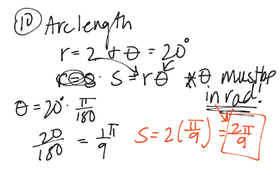 ⑩ Arc length
r = 2 & θ = 20°
S = rθ *θ must be in rad.
θ = 20° · π/180
20/180 = 1π/9
S = 2(π/9) = 2π/9